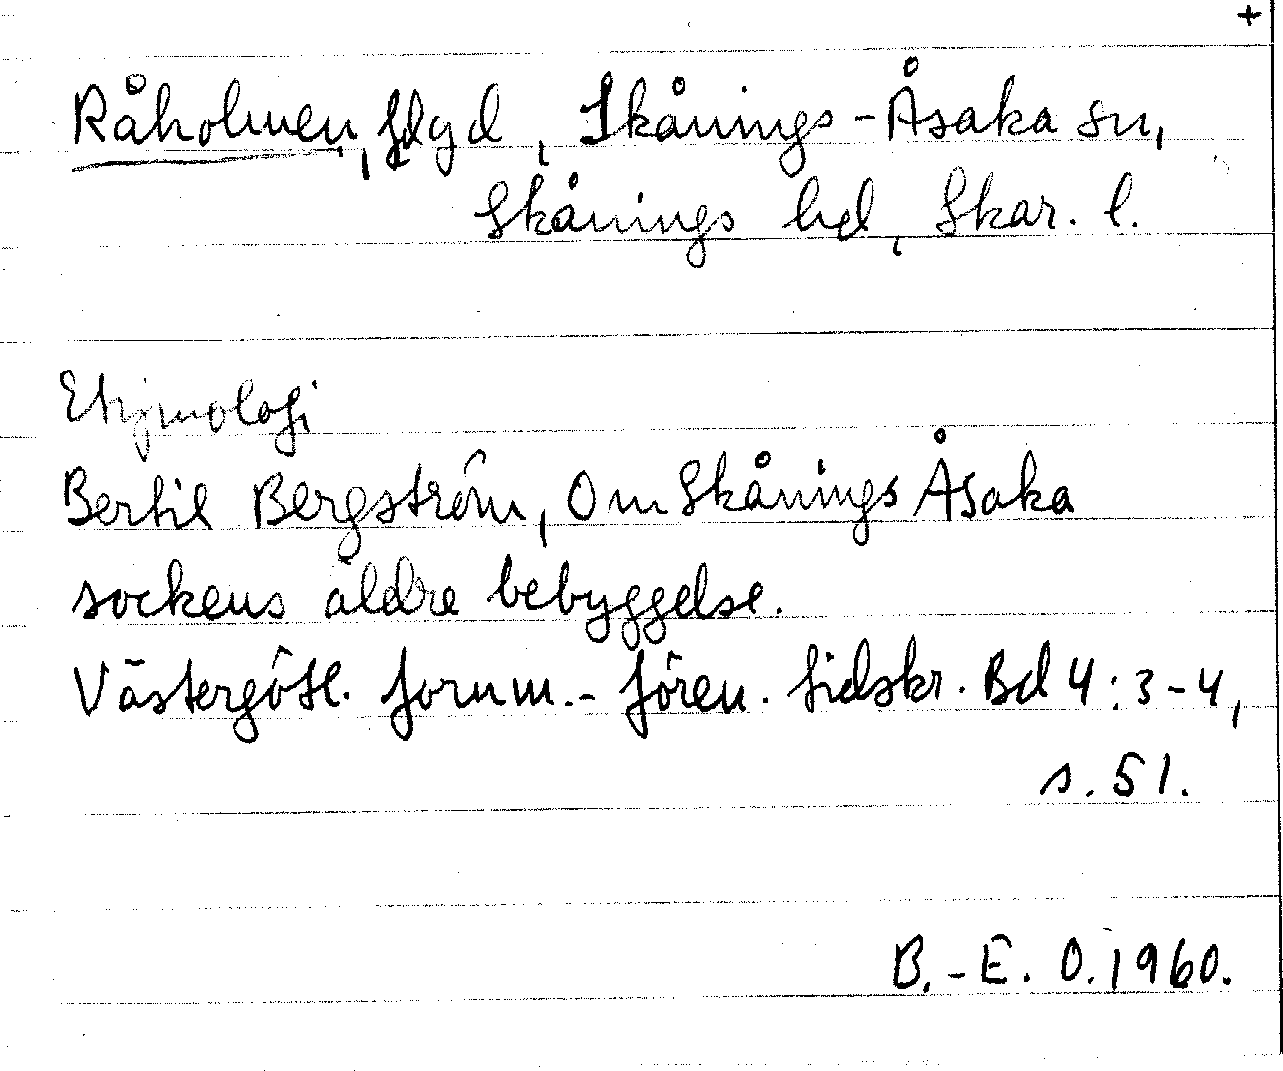 +
Råholmen, fdgd, Skånings-Åsaka sn,
Skånings hd, Skar. l.
Etymologi
Bertil Bergström, Om Skånings Åsaka
sockens äldre bebyggelse.
Västergötl. fornm.-fören. tidskr. Bd 4:3-4,
s. 51.
B.-E. O. 1960.